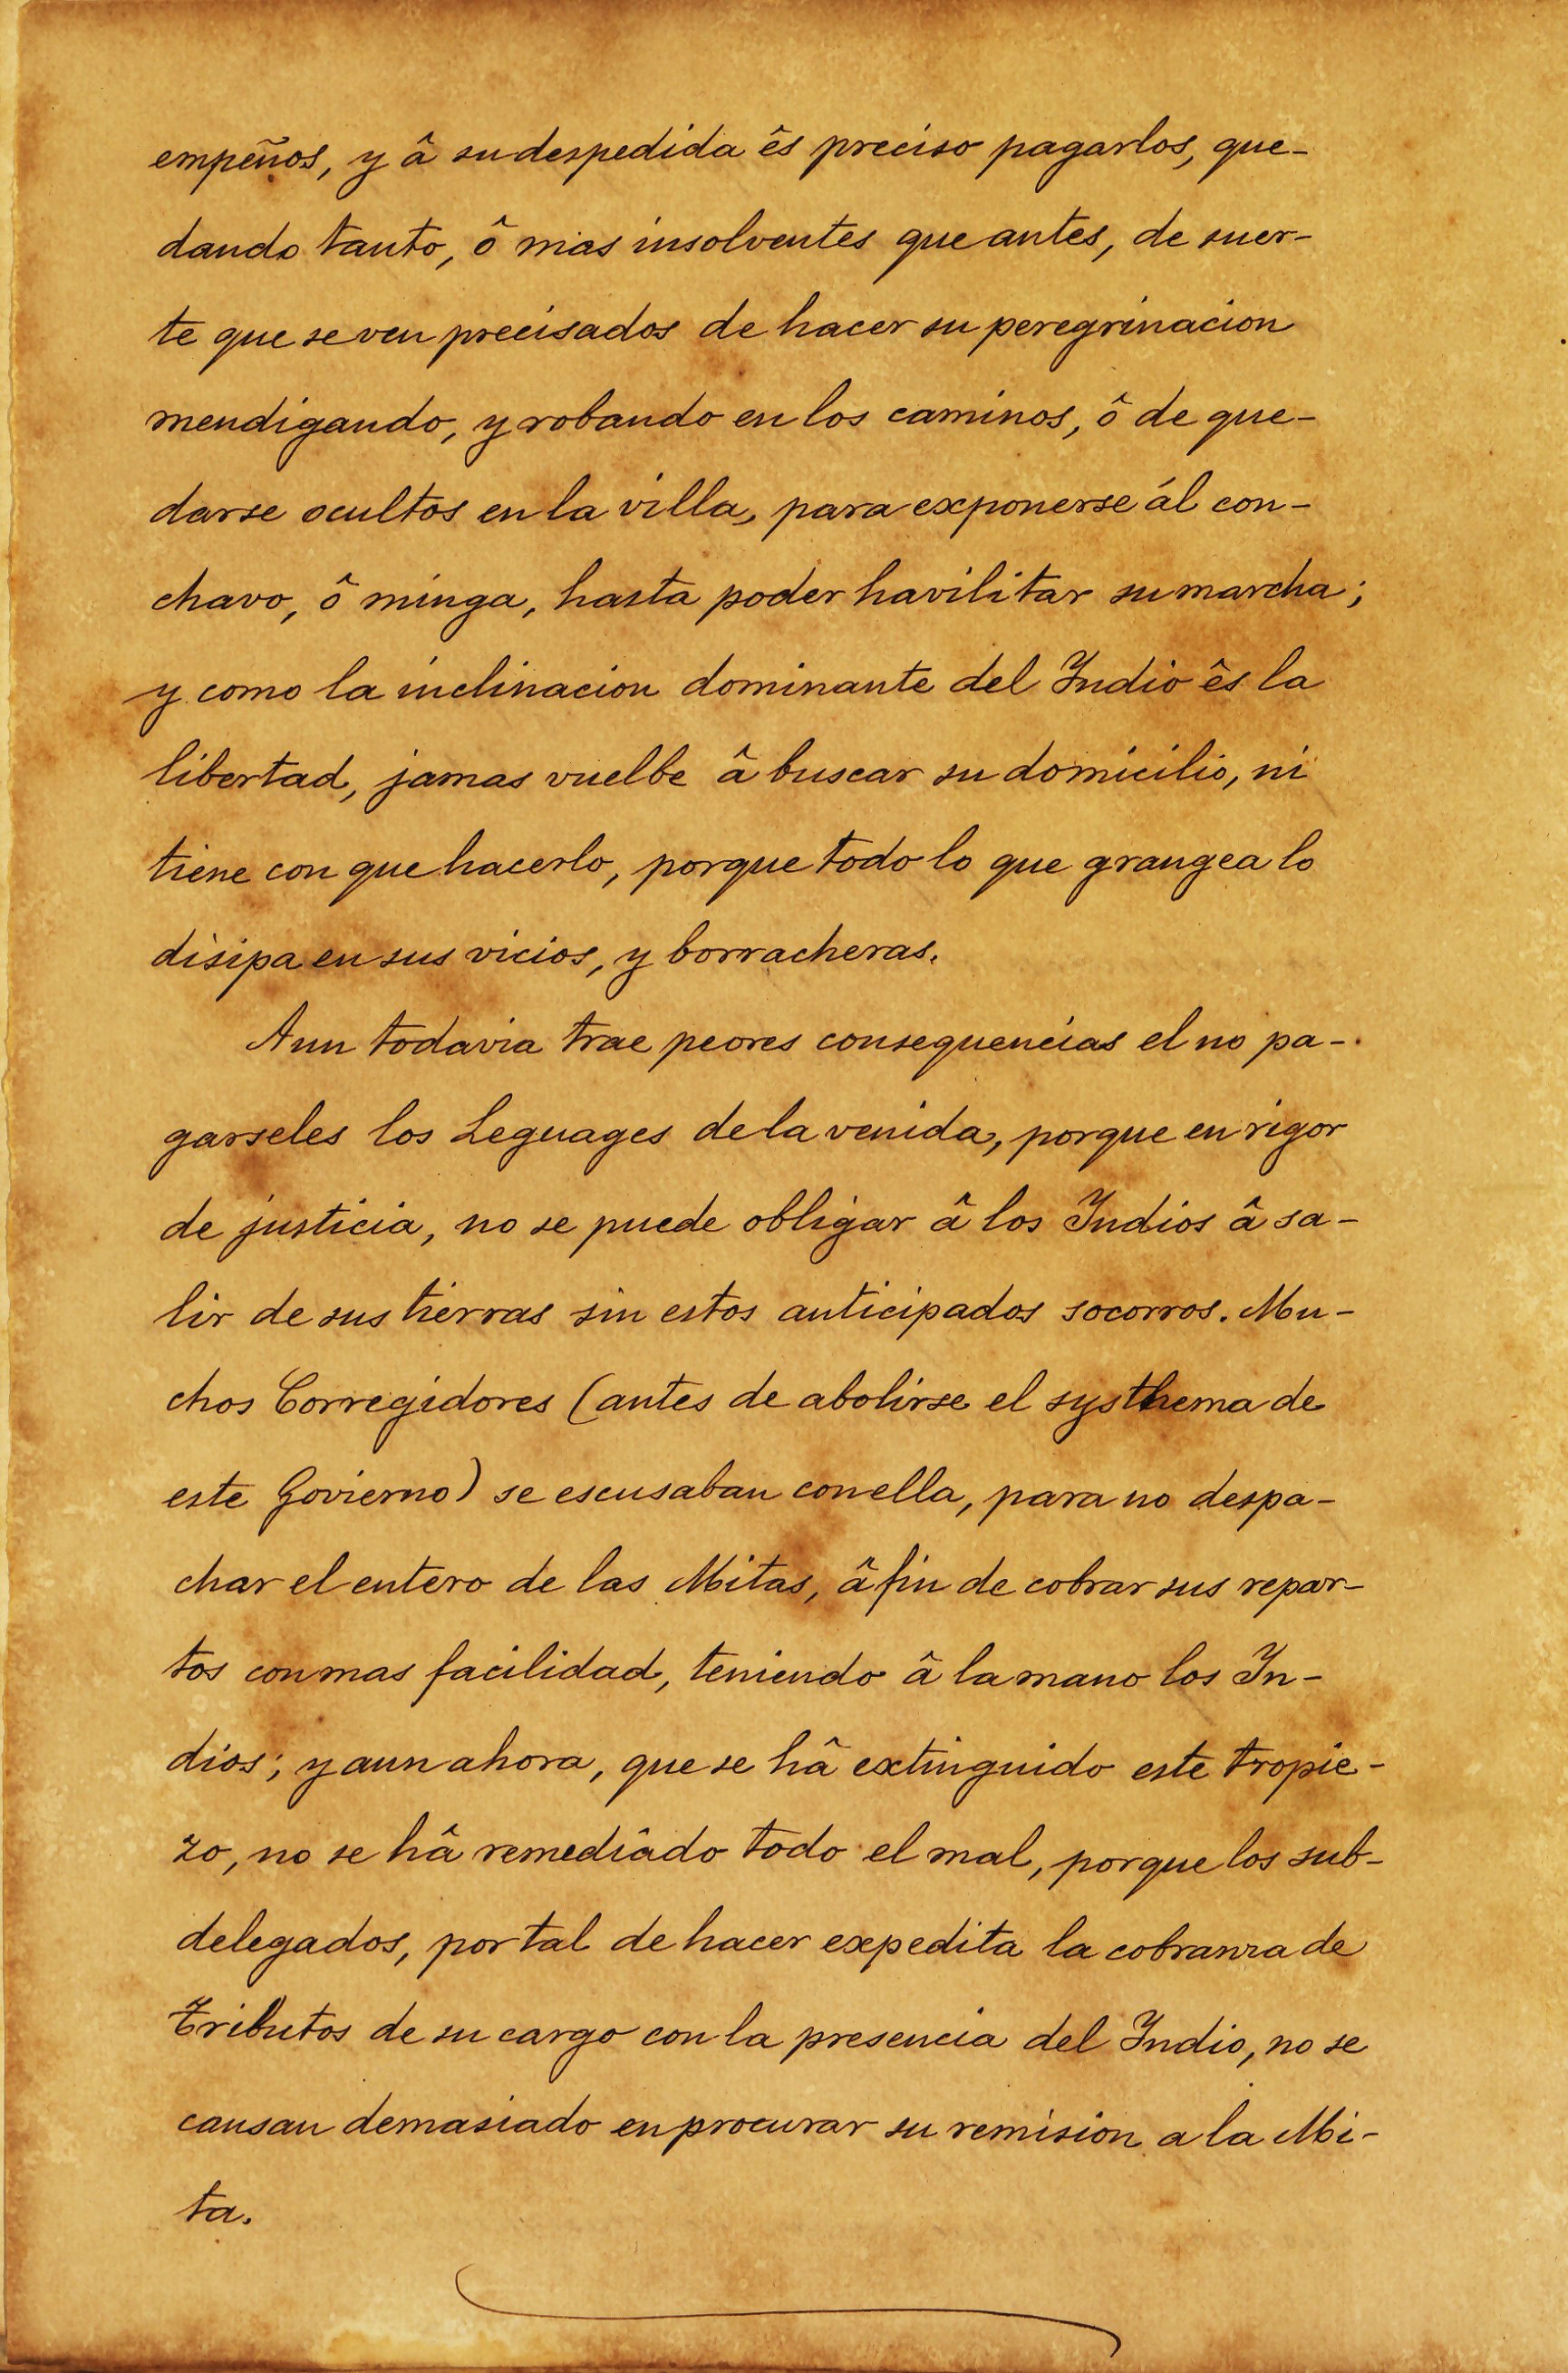 empeños, y â su despedida ês preciso pagarlos, que-
dando tanto, ô mas insolventes que antes, de suer-
te que se ven precisados de hacer su peregrinacion
mendigando, y robando en los caminos, ô de que-
darse ocultos en la villa, para exponerse ál con-
chavo, ô minga, hasta poder havilitar su marcha;
y como la inclinacion dominante del Indio ês la
libertad, jamas vuelbe â buscar su domicilio, ni
tiene con que hacerlo, porque todo lo que grangea lo
disipa en sus vicios, y borracheras.
Aun todavia trae peores consequencias el no pa-
garseles los Leguages de la venida, porque en rigor
de justicia, no se puede obligar â los Indios â sa-
lir de sus tierras sin estos anticipados socorros. Mu-
chos Corregidores (antes de abolirse el systhema de
este Govierno) se escusaban con ella, para no despa-
char el entero de las Mitas, â fin de cobrar sus repar-
tos con mas facilidad, teniendo â la mano los In-
dios; y aun ahora, que se hâ extinguido este tropie-
zo, no se hâ remediâdo todo el mal, porque los sub-
delegados, por tal de hacer expedita la cobranza de
Tributos de su cargo con la presencia del Indio, no se
causan demasiado en procurar su remision a la Mi-
ta.